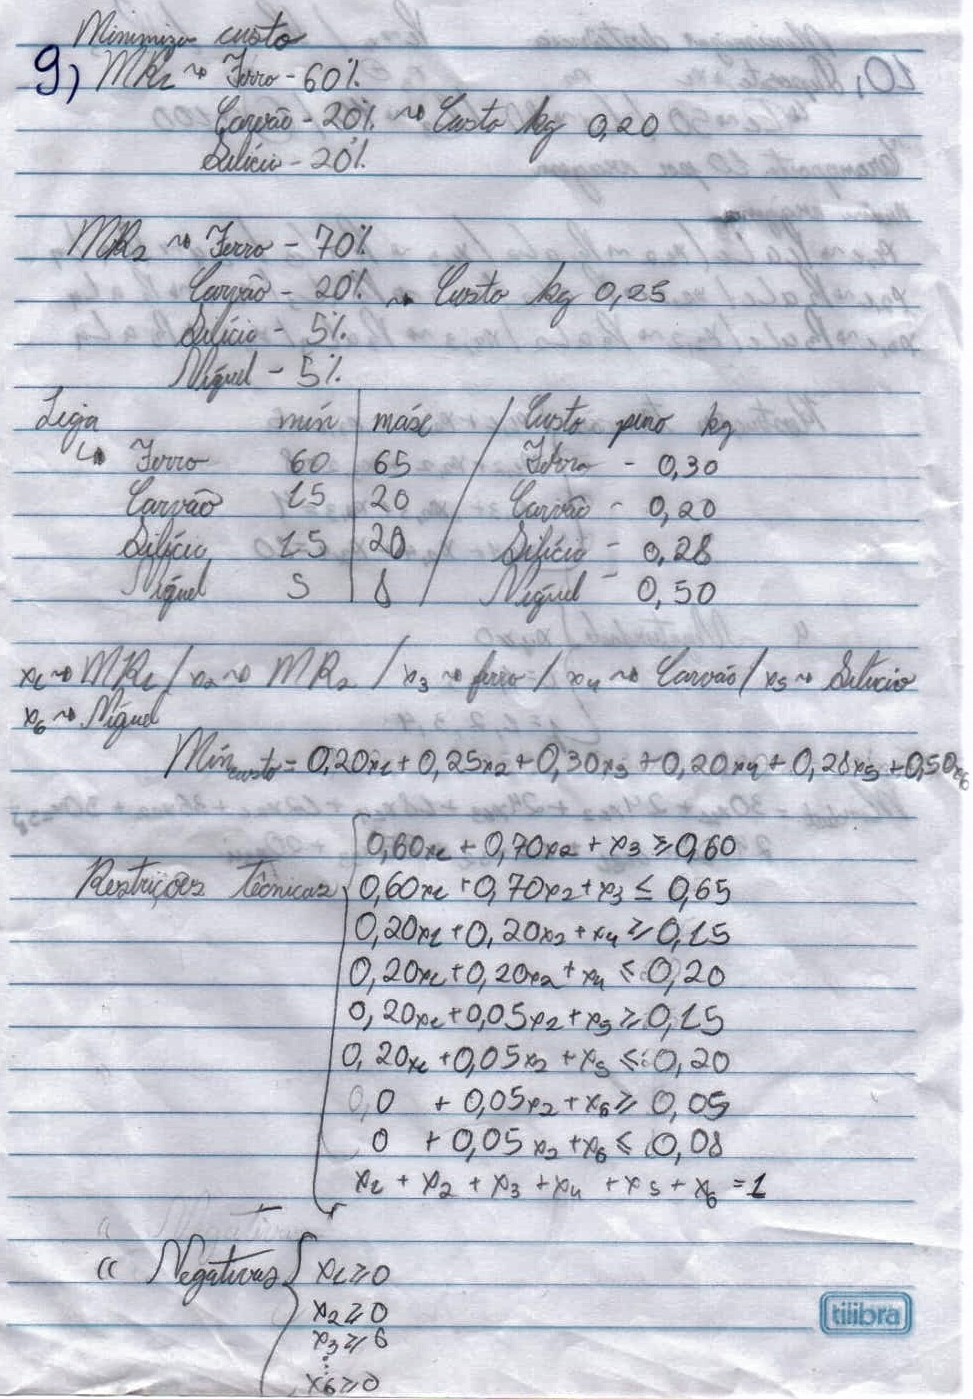 Minimizar custo
9) MR1 ~> Ferro - 60%
Carvão - 20% ~> Custo kg 0,20
Silício - 20%
MR2 ~> Ferro - 70%
Carvão - 20% ~> Custo kg 0,25
Silício - 5%
Níquel - 5%
Liga mín | máx / Custo puro kg
↳ Ferro 60 | 65 / Ferro - 0,30
Carvão 15 | 20 / Carvão - 0,20
Silício 15 | 20 / Silício - 0,28
Níquel 5 | 8 / Níquel - 0,50
x1 ~> MR1 / x2 ~> MR2 / x3 ~> ferro / x4 ~> Carvão / x5 ~> Silício
x6 ~> Níquel
Mín custo = 0,20x1 + 0,25x2 + 0,30x3 + 0,20x4 + 0,28x5 + 0,50x6
0,60x1 + 0,70x2 + x3 ≥ 0,60
Restrições técnicas 0,60x1 + 0,70x2 + x3 ≤ 0,65
0,20x1 + 0,20x2 + x4 ≥ 0,15
0,20x1 + 0,20x2 + x4 ≤ 0,20
0,20x1 + 0,05x2 + x5 ≥ 0,15
0,20x1 + 0,05x2 + x5 ≤ 0,20
0,0 + 0,05x2 + x6 ≥ 0,05
0 + 0,05x2 + x6 ≤ 0,08
x1 + x2 + x3 + x4 + x5 + x6 = 1
" Negativas { x1 ≥ 0
x2 ≥ 0
x3 ≥ 0
⋮
x6 ≥ 0
tilibra